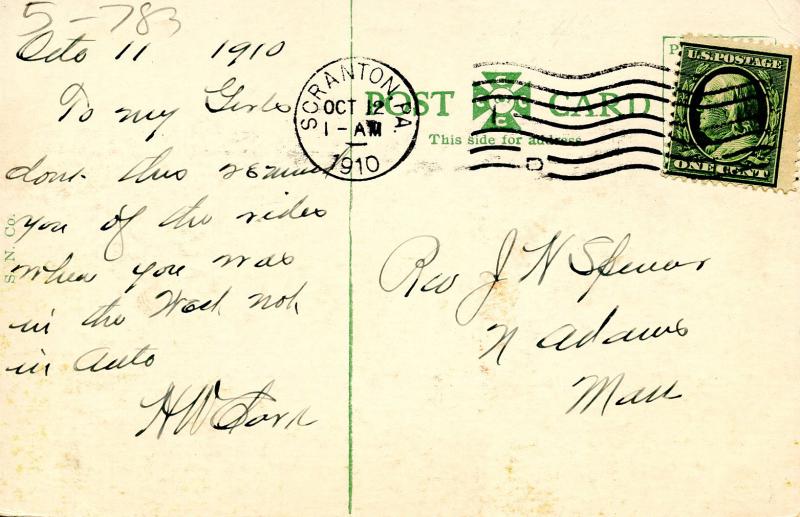 5-783
Octo 11 1910
To my Girls
dont this remind
you of the rides
when you was
in the West not
in Auto
H W Clark
S. N. Co.
SCRANTON, PA
OCT 12
1-AM
1910
POST CARD
This side for address
U.S. POSTAGE
ONE CENT
Rev J N Spencer
N Adams
Mass